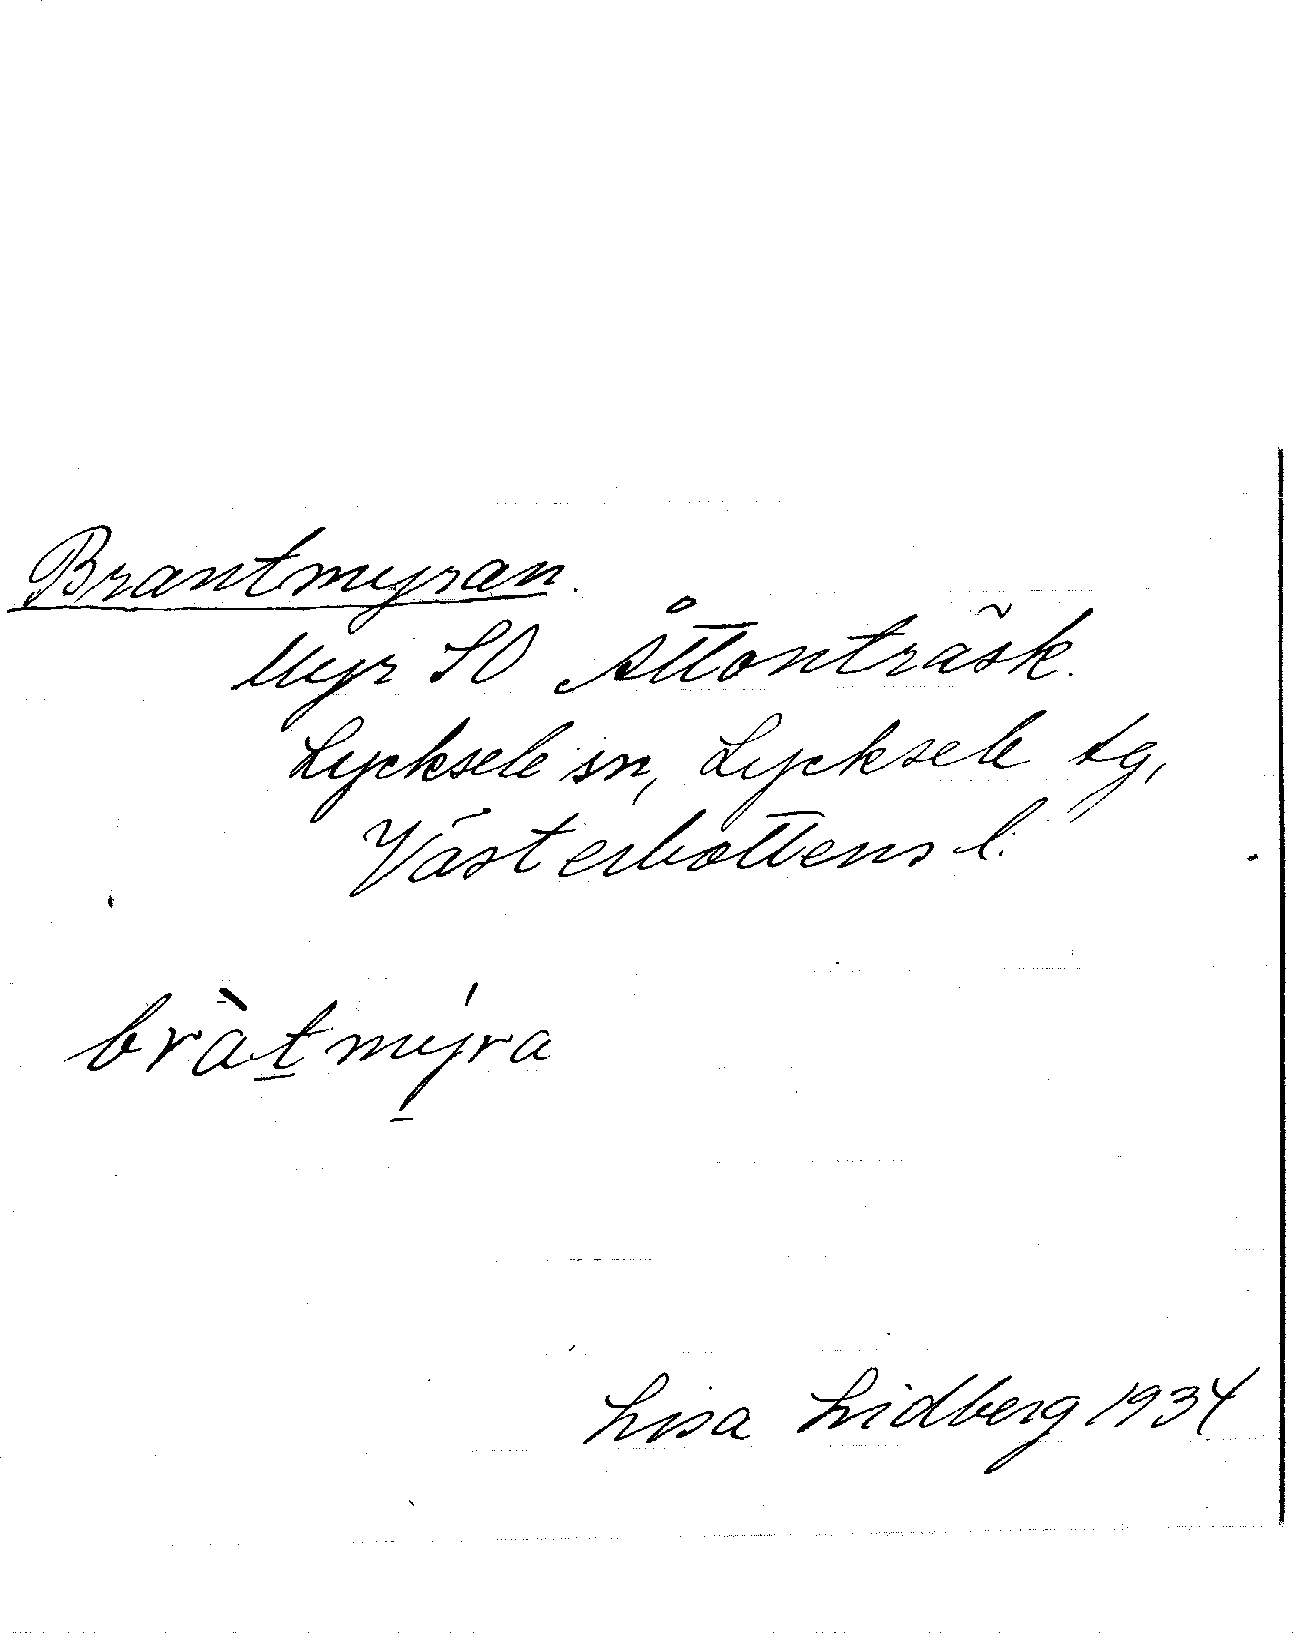 Brantmyran.
Myr SO Åttonträsk.
Lycksele sn, Lycksele tg,
Västerbottens l.
bràt̲mý̲ra
Lisa Lidberg 1934